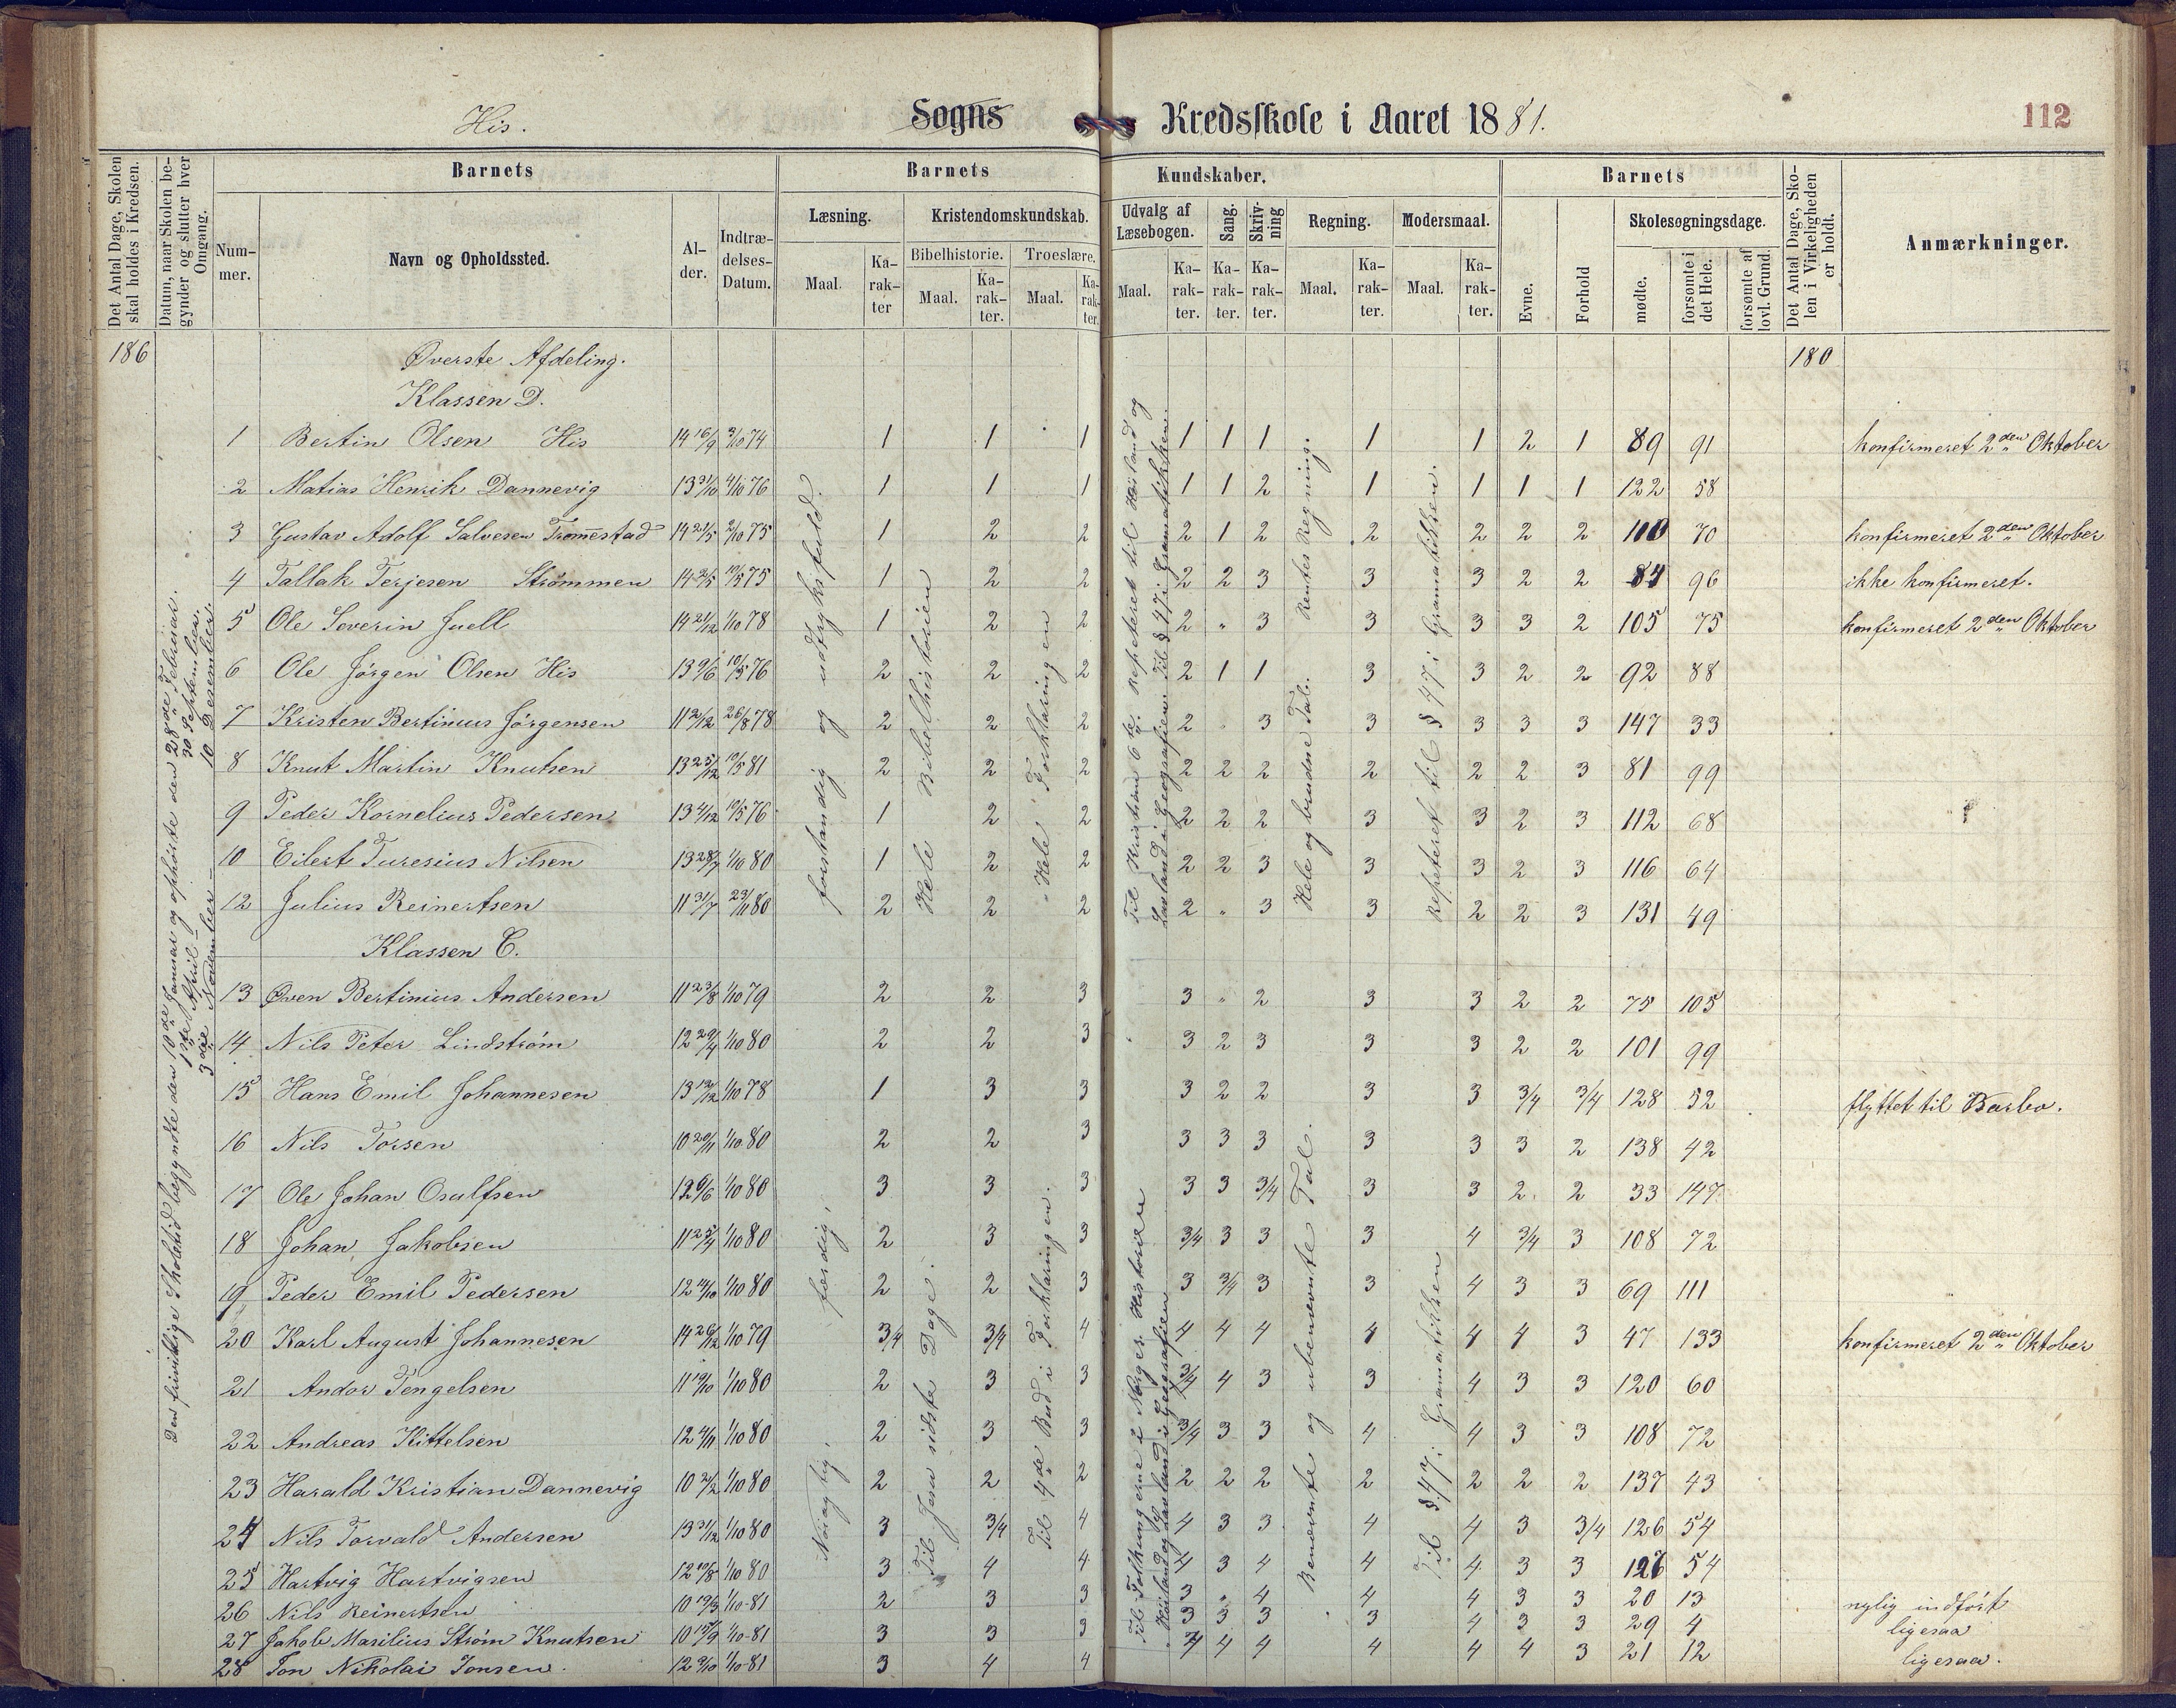 His. Sogns Kredsskole i Aaret 1881. 112
Det Antal Dage, Skolen skal holdes i Kredsen.
Datum, naar Skolen begynder og slutter hver Omgang.
Barnets
Nummer.
Navn og Opholdssted.
Alder.
Indtrædelses-Datum.
Barnets Kundskaber.
Læsning.
Maal. Karakter
Kristendomskundskab.
Bibelhistorie.
Maal. Karakter.
Troeslære.
Maal. Karakter.
Udvalg af Læsebogen.
Maal. Karakter.
Sang.
Karakter.
Skrivning
Karakter.
Regning.
Maal. Karakter.
Modersmaal.
Maal. Karakter.
Barnets
Evne.
Forhold
Skolesøgningsdage.
mødte.
forsømte i det Hele.
forsømte af lovl. Grund.
Det Antal Dage, Skolen i Virkeligheden er holdt.
Anmærkninger.
186 Øverste Afdeling. 180
Klassen D.
1 Bertin Olsen His 14 16/9 3/10 74 1 1 1 1 1 1 1 1 2 1 89 91 konfirmeret 2den Oktober
2 Matias Henrik Dannevig 13 31/10 4/10 76 1 1 1 1 1 2 1 1 1 1 122 58
3 Gustav Adolf Salvesen Trommestad 14 21/5 2/10 75 1 2 2 2 1 2 2 2 2 2 110 70 konfirmeret 2den Oktober
4 Tallak Terjesen Strømmen 14 2/5 10/5 75 1 2 2 2 2 3 3 3 2 2 84 96 ikke konfirmeret.
5 Ole Severin Juell 14 21/12 1/10 78 1 2 2 2 " 3 3 3 3 2 105 75 konfirmeret 2den Oktober
6 Ole Jörgen Olsen His 13 9/6 10/5 76 2 2 2 2 1 1 3 3 2 2 92 88
7 Kristen Bertinius Jörgensen 11 2/12 26/8 78 2 2 2 2 " 3 3 3 3 3 147 33
8 Knut Martin Knutsen 13 25/12 10/5 81 2 2 2 2 2 2 2 2 2 3 81 99
9 Peder Kornelius Pedersen 13 4/12 10/5 76 1 2 2 2 2 2 3 3 2 3 112 68
10 Eilert Turesius Nilsen 13 28/7 1/10 80 1 2 2 2 2 3 3 3 2 3 116 64
12 Julius Reinertsen 11 31/7 23/11 80 2 2 2 2 " 3 3 2 2 3 131 49
Klassen C.
13 Øven Bertinius Andersen 11 23/8 1/10 79 2 2 3 3 " 2 3 3 2 2 75 105
14 Nils Peter Lindström 12 29/4 1/10 80 2 2 3 3 2 3 3 3 2 2 101 99
15 Hans Emil Johannesen 13 12/12 1/10 78 1 3 3 3 2 2 3 3 3/4 3/4 128 52 flyttet til Barbo.
16 Nils Torsen 10 20/11 1/10 80 2 2 3 3 3 3 3 3 3 2 138 42
17 Ole Johan Osulfsen 12 6/6 1/10 80 3 3 3 3 3 3/4 3 3 2 2 33 147
18 Johan Jakobsen 11 25/4 1/10 80 2 3 3 3/4 3 3 3 4 3/4 3 108 72
19 Peder Emil Pedersen 12 14/10 1/10 80 2 2 3 3 3/4 3 3 4 3 3 69 111
20 Karl August Johannesen 14 26/12 1/10 79 3/4 3/4 4 4 4 4 4 4 4 3 47 133 konfirmeret 2den Oktober
21 Andor Tengelsen 11 19/10 1/10 80 2 3 3 3/4 4 3 3 4 3 3 120 60
22 Andreas Kittelsen 12 4/11 1/10 80 2 3 3 3/4 3 3 4 4 3 3 108 72
23 Harald Kristian Dannevig 10 2/2 1/10 80 2 2 2 2 2 2 2 2 2 2 137 43
24 Nils Torvald Andersen 13 31/12 1/10 80 3 3/4 4 4 3 3 4 4 3 3/4 126 54
25 Hartvig Hartvigsen 12 10/8 1/10 80 3 4 4 4 3 4 4 4 3 3 126 54
26 Nils Reinertsen 10 19/3 1/10-81 2 3 3 3 " 4 4 4 3 3 20 13 nylig indført
27 Jakob Marilius Strøm Knutsen 10 15/9 1/10-81 3 3 3 3 3 3 3 4 3 3 29 4 ligesaa
28 Jon Nikolai Jonsen. 12 9/10 1/10-81 3 4 4 4 4 4 4 4 4 3 21 12 ligesaa.
Den frivillige Skoletid begyndte den 10de Januar og ophørte den 28de Februar.
1ste April 30 September.
3die November 10 Desember
forstandig og udtryksfuld.
Hele Bibelhistorien
Hele Forklaringen
Til Kristian 6te. Repeteret til Hørland og
Lavland i Geografien. Til § 47 i Gramatikken.
Hele og brudne Tal. Rentes Regning.
Repeteret til § 47 i Gramatikken.
Nøiagtig, færdig,
Til Jesu sidste Dage.
Til 4de Bud i Forklaringen.
Til Folkungerne i Norges Historien
Hørland og Lavland i Geografien
Benevnte og ubenevnte Tal.
Til § 47 i Gramatikken